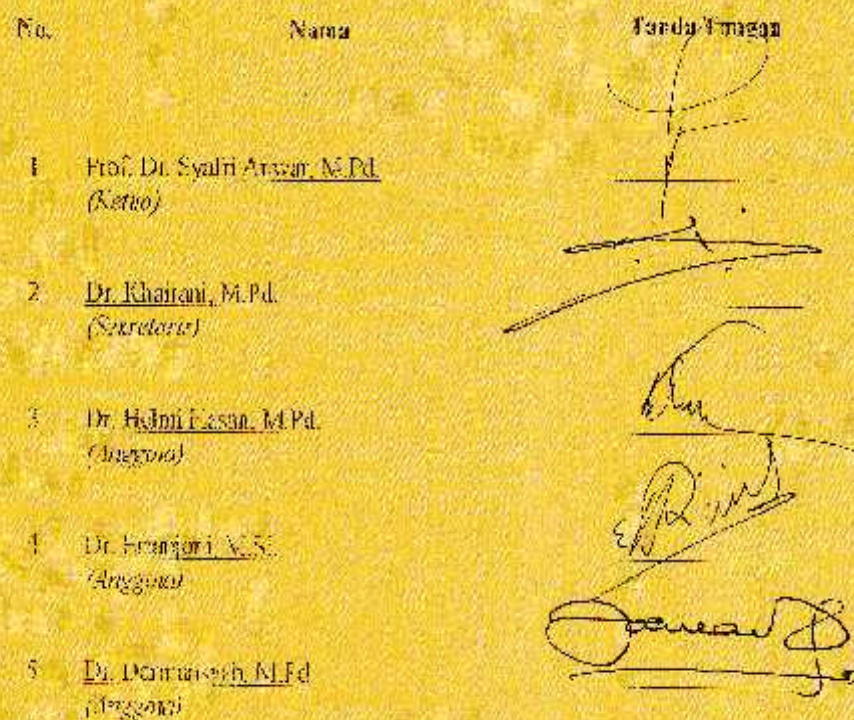 No. Nama Tanda Tangan
1 Prof. Dr. Syafri Anwar, M.Pd.
(Ketua)
2 Dr. Khairani, M.Pd.
(Sekretaris)
3 Dr. Helmi Hasan, M.Pd.
(Anggota)
4 Dr. M.Si.
(Anggota)
5 Dr. M.Pd
(Anggota)